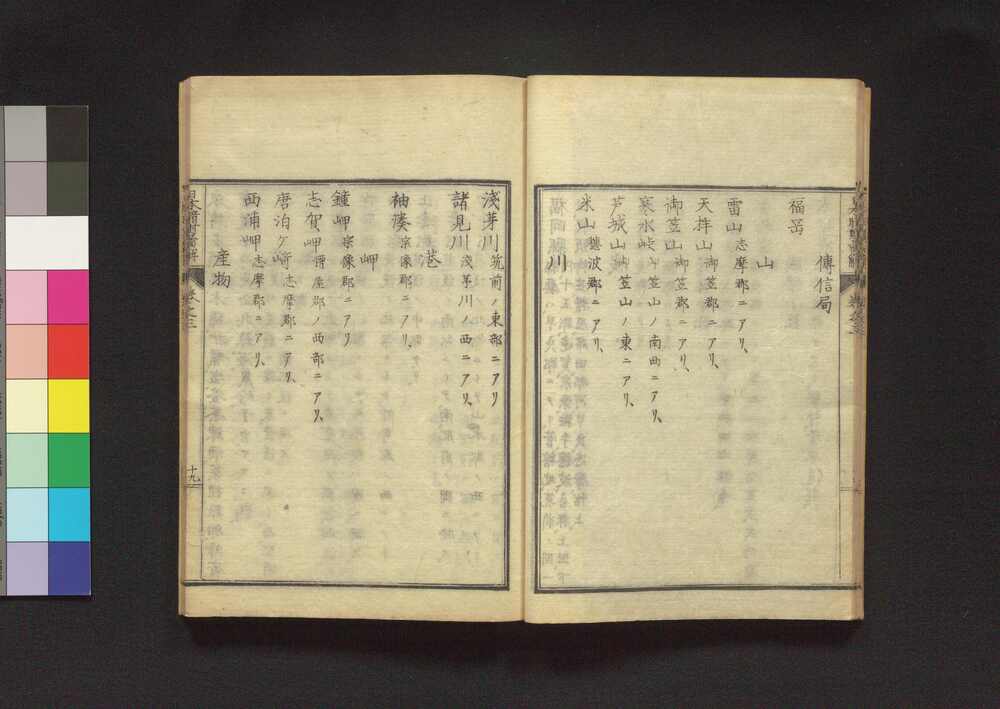 傳信局
福岡
山
雷山志摩郡ニアリ、
天拝山御笠郡ニアリ、
御笠山御笠郡ニアリ、
寒水峠御笠山ノ南西ニアリ、
芦城山御笠山ノ東ニアリ、
米山穂波郡ニアリ、
川
淺茅川筑前ノ東部ニアリ
諸見川淺茅川ノ西ニアリ、
港
袖湊宗像郡ニアリ、
岬
鐘岬宗像郡ニアリ
志賀岬糟屋郡ノ西部ニアリ、
唐泊ケ崎志摩郡ニアリ、
西浦岬志摩郡ニアリ、
産物
卷之三
十九